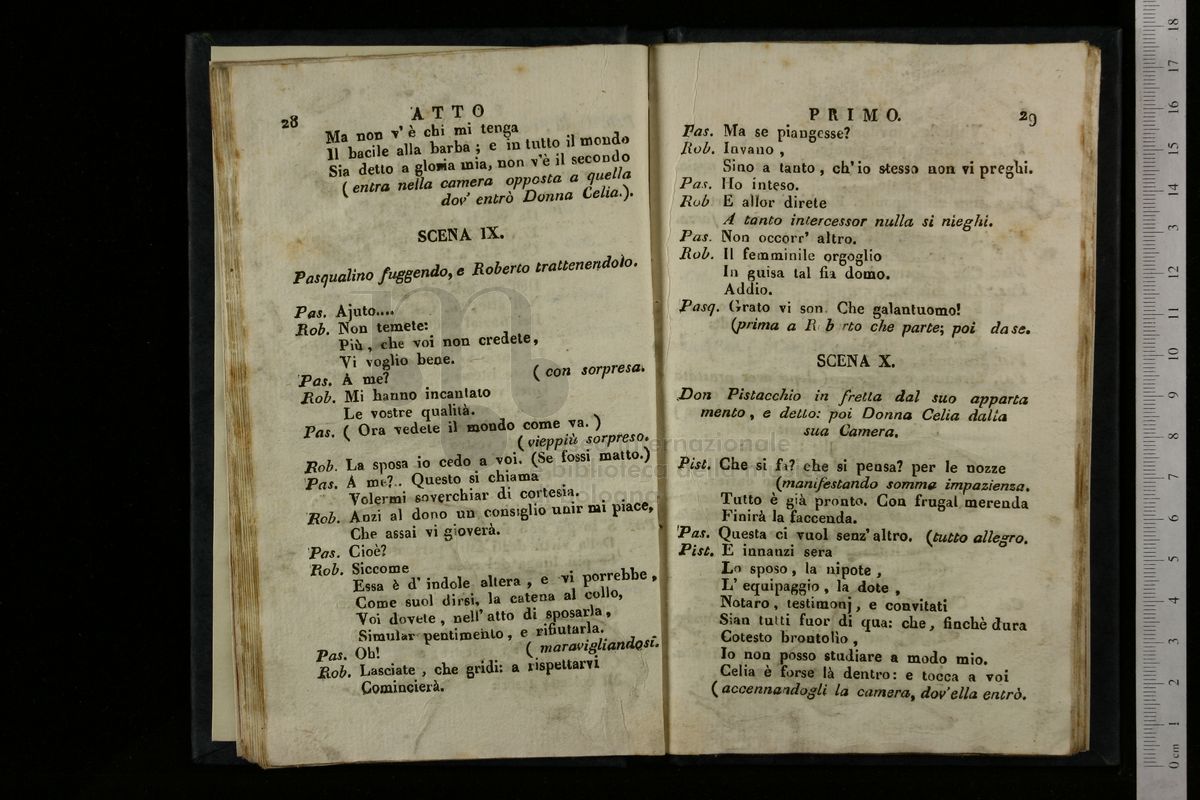 28
ATTO
Ma non v' è chi mi tenga
Il bacile alla barba ; e in tutto il mondo
Sia detto a gloria mia, non v'è il secondo
( entra nella camera opposta a quella
dov' entrò Donna Celia.).
SCENA IX.
Pasqualino fuggendo, e Roberto trattenendolo.
Pas. Ajuto....
Rob. Non temete:
Più , che voi non credete,
Vi voglio bene.
Pas. A me? ( con sorpresa.
Rob. Mi hanno incantato
Le vostre qualità.
Pas. ( Ora vedete il mondo come va. )
( vieppiù sorpreso.
Rob. La sposa io cedo a voi. (Se fossi matto.)
Pas. A me?.. Questo si chiama
Volermi soverchiar di cortesia.
Rob. Anzi al dono un consiglio unir mi piace,
Che assai vi gioverà.
Pas. Cioè?
Rob. Siccome
Essa è d' indole altera , e vi porrebbe ,
Come suol dirsi, la catena al collo,
Voi dovete , nell' atto di sposarla ,
Simular pentimento , e rifiutarla.
Pas. Oh! ( maravigliandosi.
Rob. Lasciate , che gridi: a rispettarvi
Comincierà.
PRIMO.
29
Pas. Ma se piangesse?
Rob. Invano ,
Sino a tanto , ch' io stesso non vi preghi.
Pas. Ho inteso.
Rob E allor direte
A tanto intercessor nulla si nieghi.
Pas. Non occorr' altro.
Rob. Il femminile orgoglio
In guisa tal fia domo.
Addio.
Pasq. Grato vi son. Che galantuomo!
(prima a R b rto che parte; poi da se.
SCENA X.
Don Pistacchio in fretta dal suo apparta
mento , e detto: poi Donna Celia dalla
sua Camera.
Pist. Che si fa? che si pensa? per le nozze
(manifestando somma impazienza.
Tutto è già pronto. Con frugal merenda
Finirà la faccenda.
Pas. Questa ci vuol senz' altro. (tutto allegro.
Pist. E innanzi sera
Lo sposo , la nipote ,
L' equipaggio , la dote ,
Notaro , testimonj , e convitati
Sian tutti fuor di qua: che , finchè dura
Cotesto brontolio ,
Io non posso studiare a modo mio.
Celia è forse là dentro: e tocca a voi
( accennandogli la camera, dov'ella entrò.
0 cm 1 2 3 4 5 6 7 8 9 10 11 12 13 14 15 16 17 18